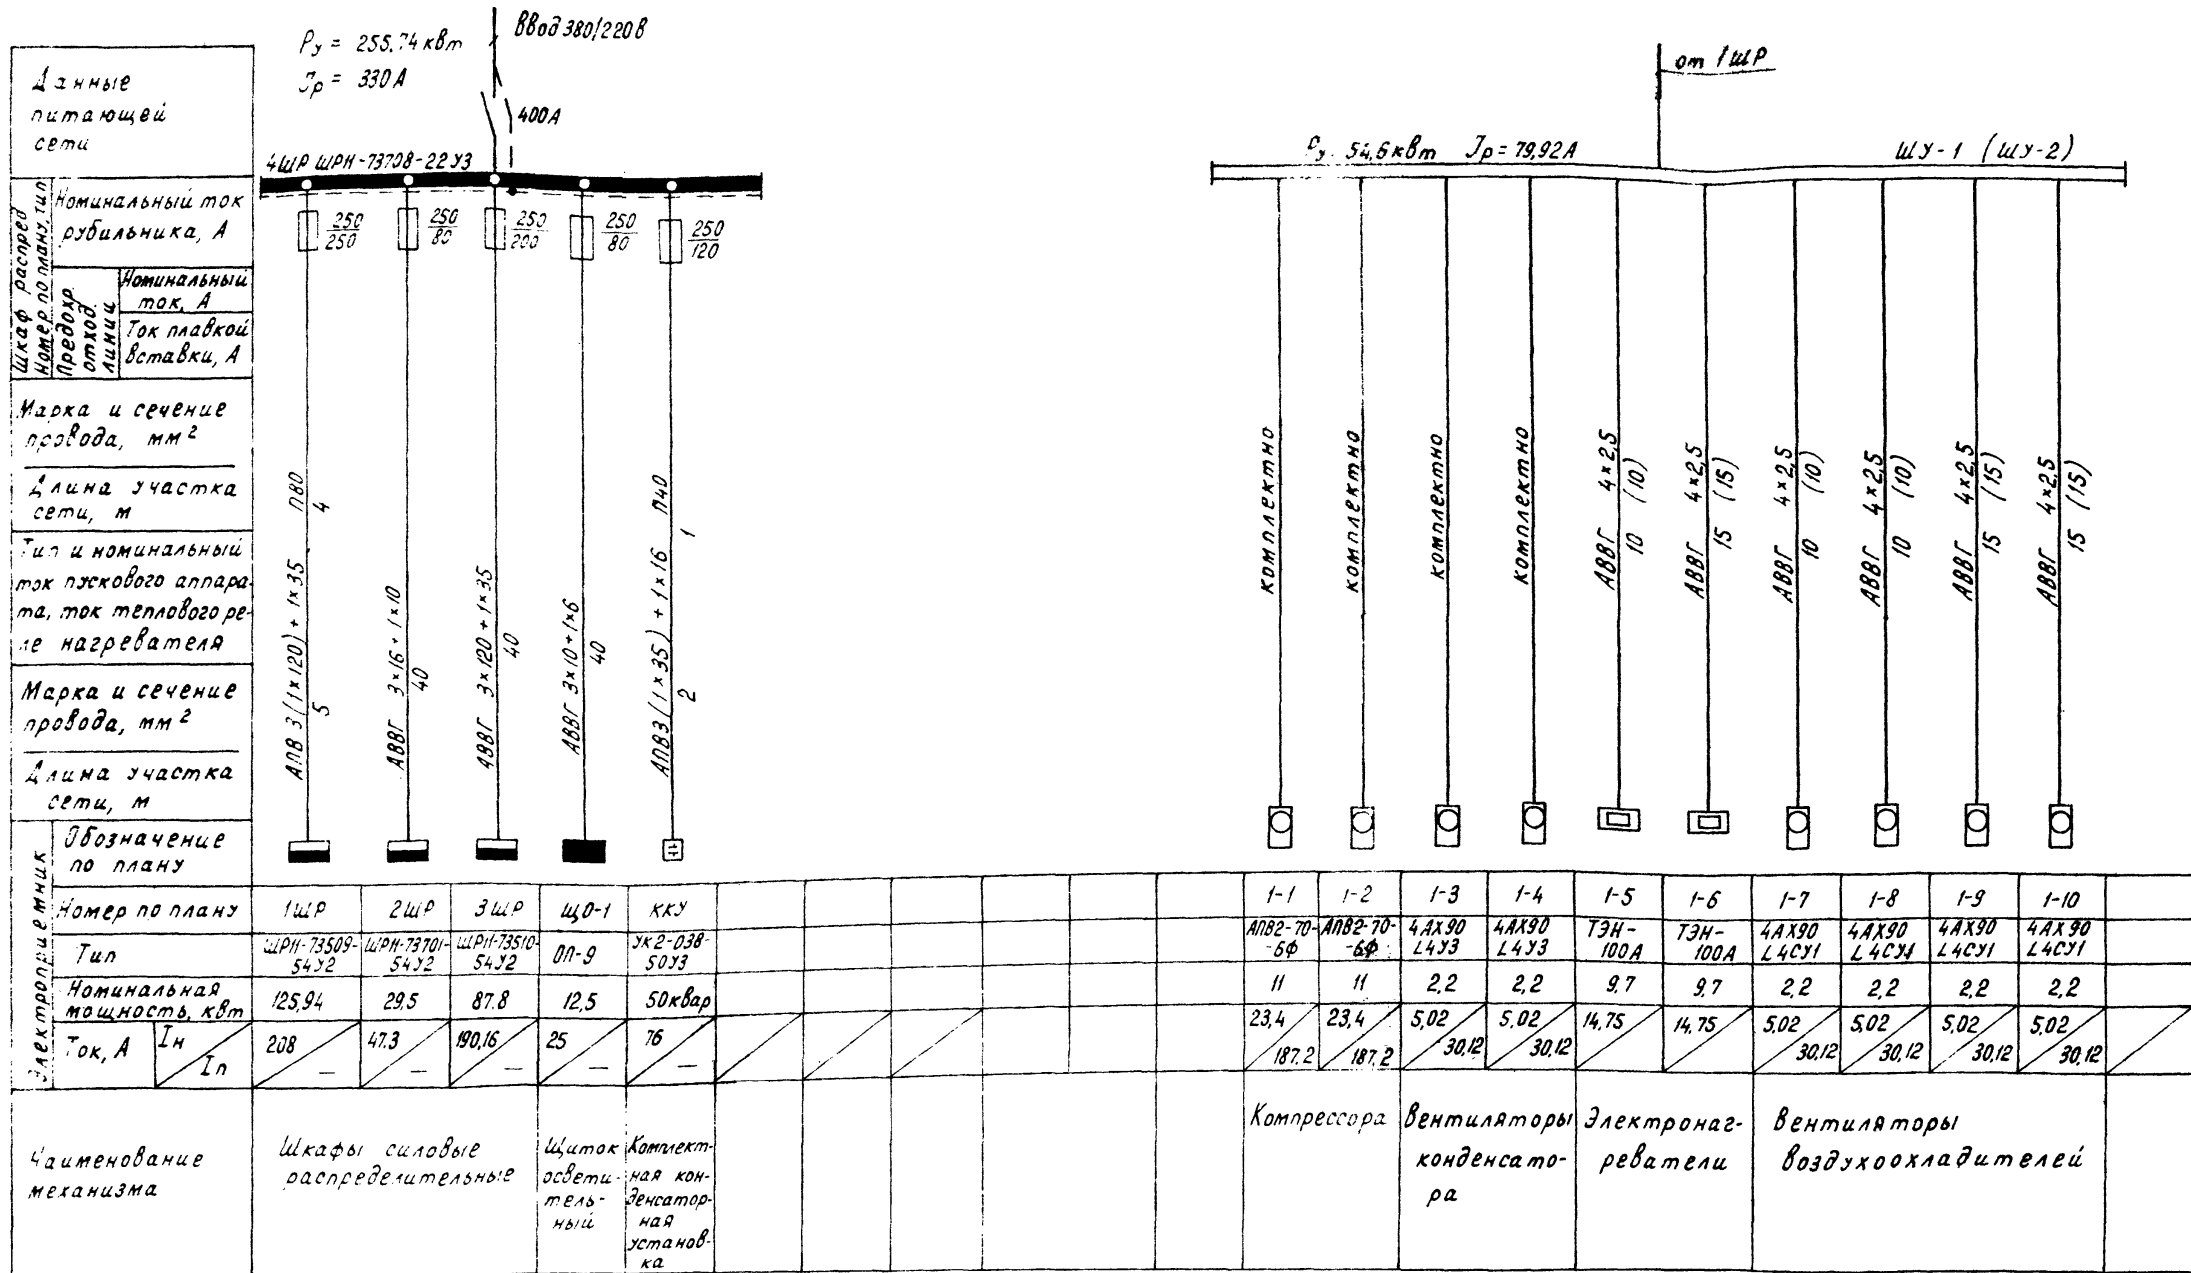 Ру = 255.74 квт
Jр = 330 А
Ввод 380/220 В
400А
4ШР ШРН-73708-22У3
от 1ШР
Ру 54,6 квт Jр = 79,92 А
ШУ-1 (ШУ-2)
Данные
питающей
сети
Шкаф распред
Номер по плану, тип
Номинальный ток
рубильника, А
Предохр.
отход.
линии
Номинальный
ток, А
Ток плавкой
вставки, А
250
250
250
80
250
200
250
80
250
120
Марка и сечение
провода, мм²
Длина участка
сети, м
Тип и номинальный
ток пускового аппара-
та, ток теплового ре-
ле нагревателя
Марка и сечение
провода, мм²
Длина участка
сети, м
АПВ 3(1×120) + 1×35 П80
5 4
АВВГ 3×16 + 1×10
40
АВВГ 3×120 + 1×35
40
АВВГ 3×10 + 1×6
40
АПВ3(1×35) + 1×16 П40
2 1
комплектно
комплектно
комплектно
комплектно
АВВГ 4×2,5
10 (10)
АВВГ 4×2,5
15 (15)
АВВГ 4×2,5
10 (10)
АВВГ 4×2,5
10 (10)
АВВГ 4×2,5
15 (15)
АВВГ 4×2,5
15 (15)
Электроприемник
Обозначение
по плану
Номер по плану 1ШР 2ШР 3ШР ЩО-1 ККУ 1-1 1-2 1-3 1-4 1-5 1-6 1-7 1-8 1-9 1-10
Тип
ШРН-73509- ШРН-73701- ШРН-73510- ОП-9 УК2-038- АПВ2-70- АПВ2-70- 4АХ90 4АХ90 ТЭН- ТЭН- 4АХ90 4АХ90 4АХ90 4АХ90
54У2 54У2 54У2 50У3 -6Ф -6Ф L4У3 L4У3 100А 100А L4СУ1 L4СУ1 L4СУ1 L4СУ1
Номинальная
мощность, квт
125,94 29,5 87.8 12,5 50квар 11 11 2,2 2,2 9,7 9,7 2,2 2,2 2,2 2,2
Ток, А Iн
Iп
208 47.3 190,16 25 76 23,4 23,4 5,02 5,02 14,75 14,75 5,02 5,02 5,02 5,02
— — — — — 187.2 187.2 30,12 30,12 30,12 30,12 30,12 30,12
Наименование
механизма
Шкафы силовые
распределительные
Щиток
освети-
тель-
ный
Комплект-
ная кон-
денсатор-
ная
установ-
ка
Компрессора
Вентиляторы
конденсато-
ра
Электронаг-
реватели
Вентиляторы
воздухоохладителей